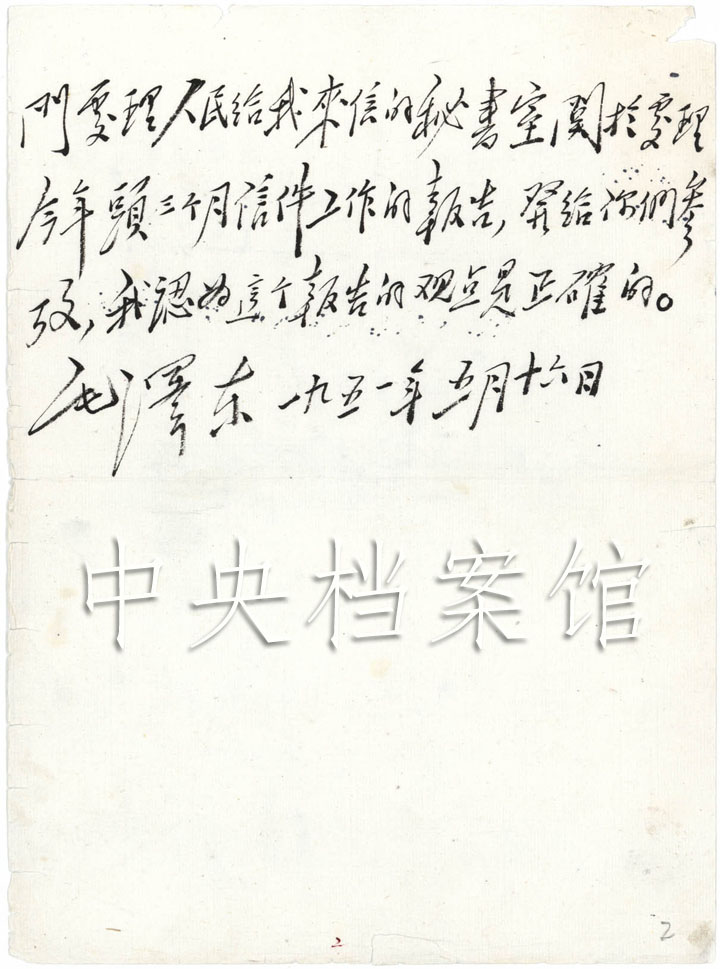 門處理人民給我來信的秘書室關於處理
今年頭三个月信件工作的報告，發給你們參
攷，我認为這个報告的观点是正確的。
毛澤东 一九五一年五月十六日
中央档案馆
2